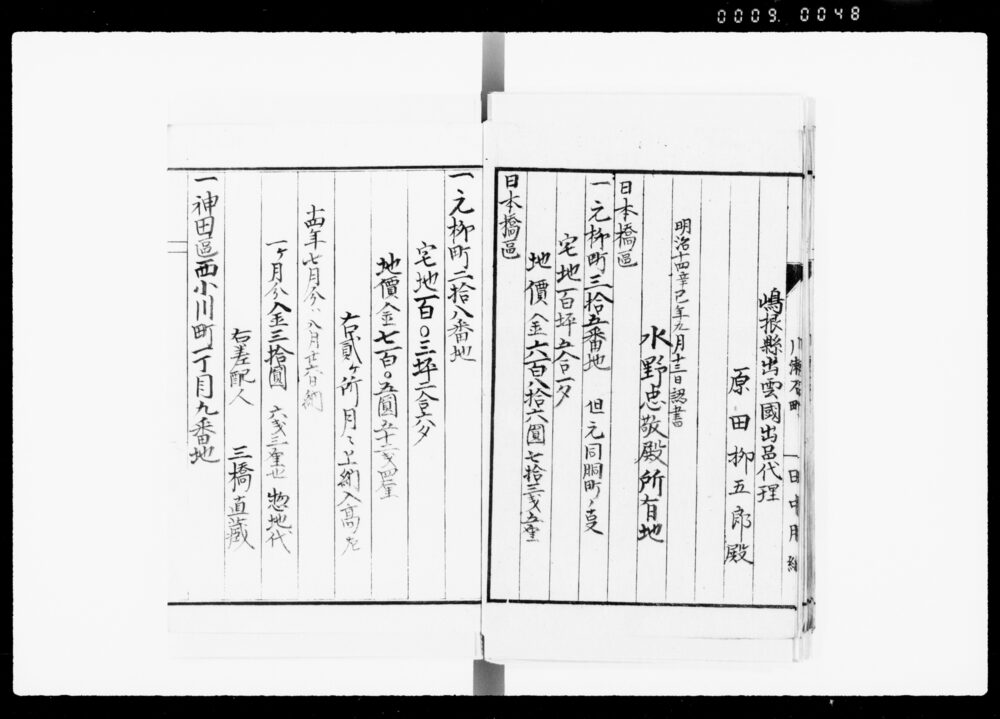 0009. 0048
嶋根縣出雲國出品代理
原田柳五郎殿
明治十四辛巳年九月十三日認書
水野忠敬殿所有地
日本橋區
一元柳町三拾五番地 但元同朋町ノ
宅地百坪五合一夕
地價金六百八拾六圓七拾三戋五厘
日本橋區
一元柳町二拾八番地
宅地百〇三坪二合六夕
地價金七百〇五圓五十二戋四厘
右貳ヶ所月々上納入高左
十四年七月分八月廿六日納
一ヶ月分入金三拾圓 六戋三厘也 惣地代
右差配人 三橋直藏
一神田區西小川町一丁目九番地